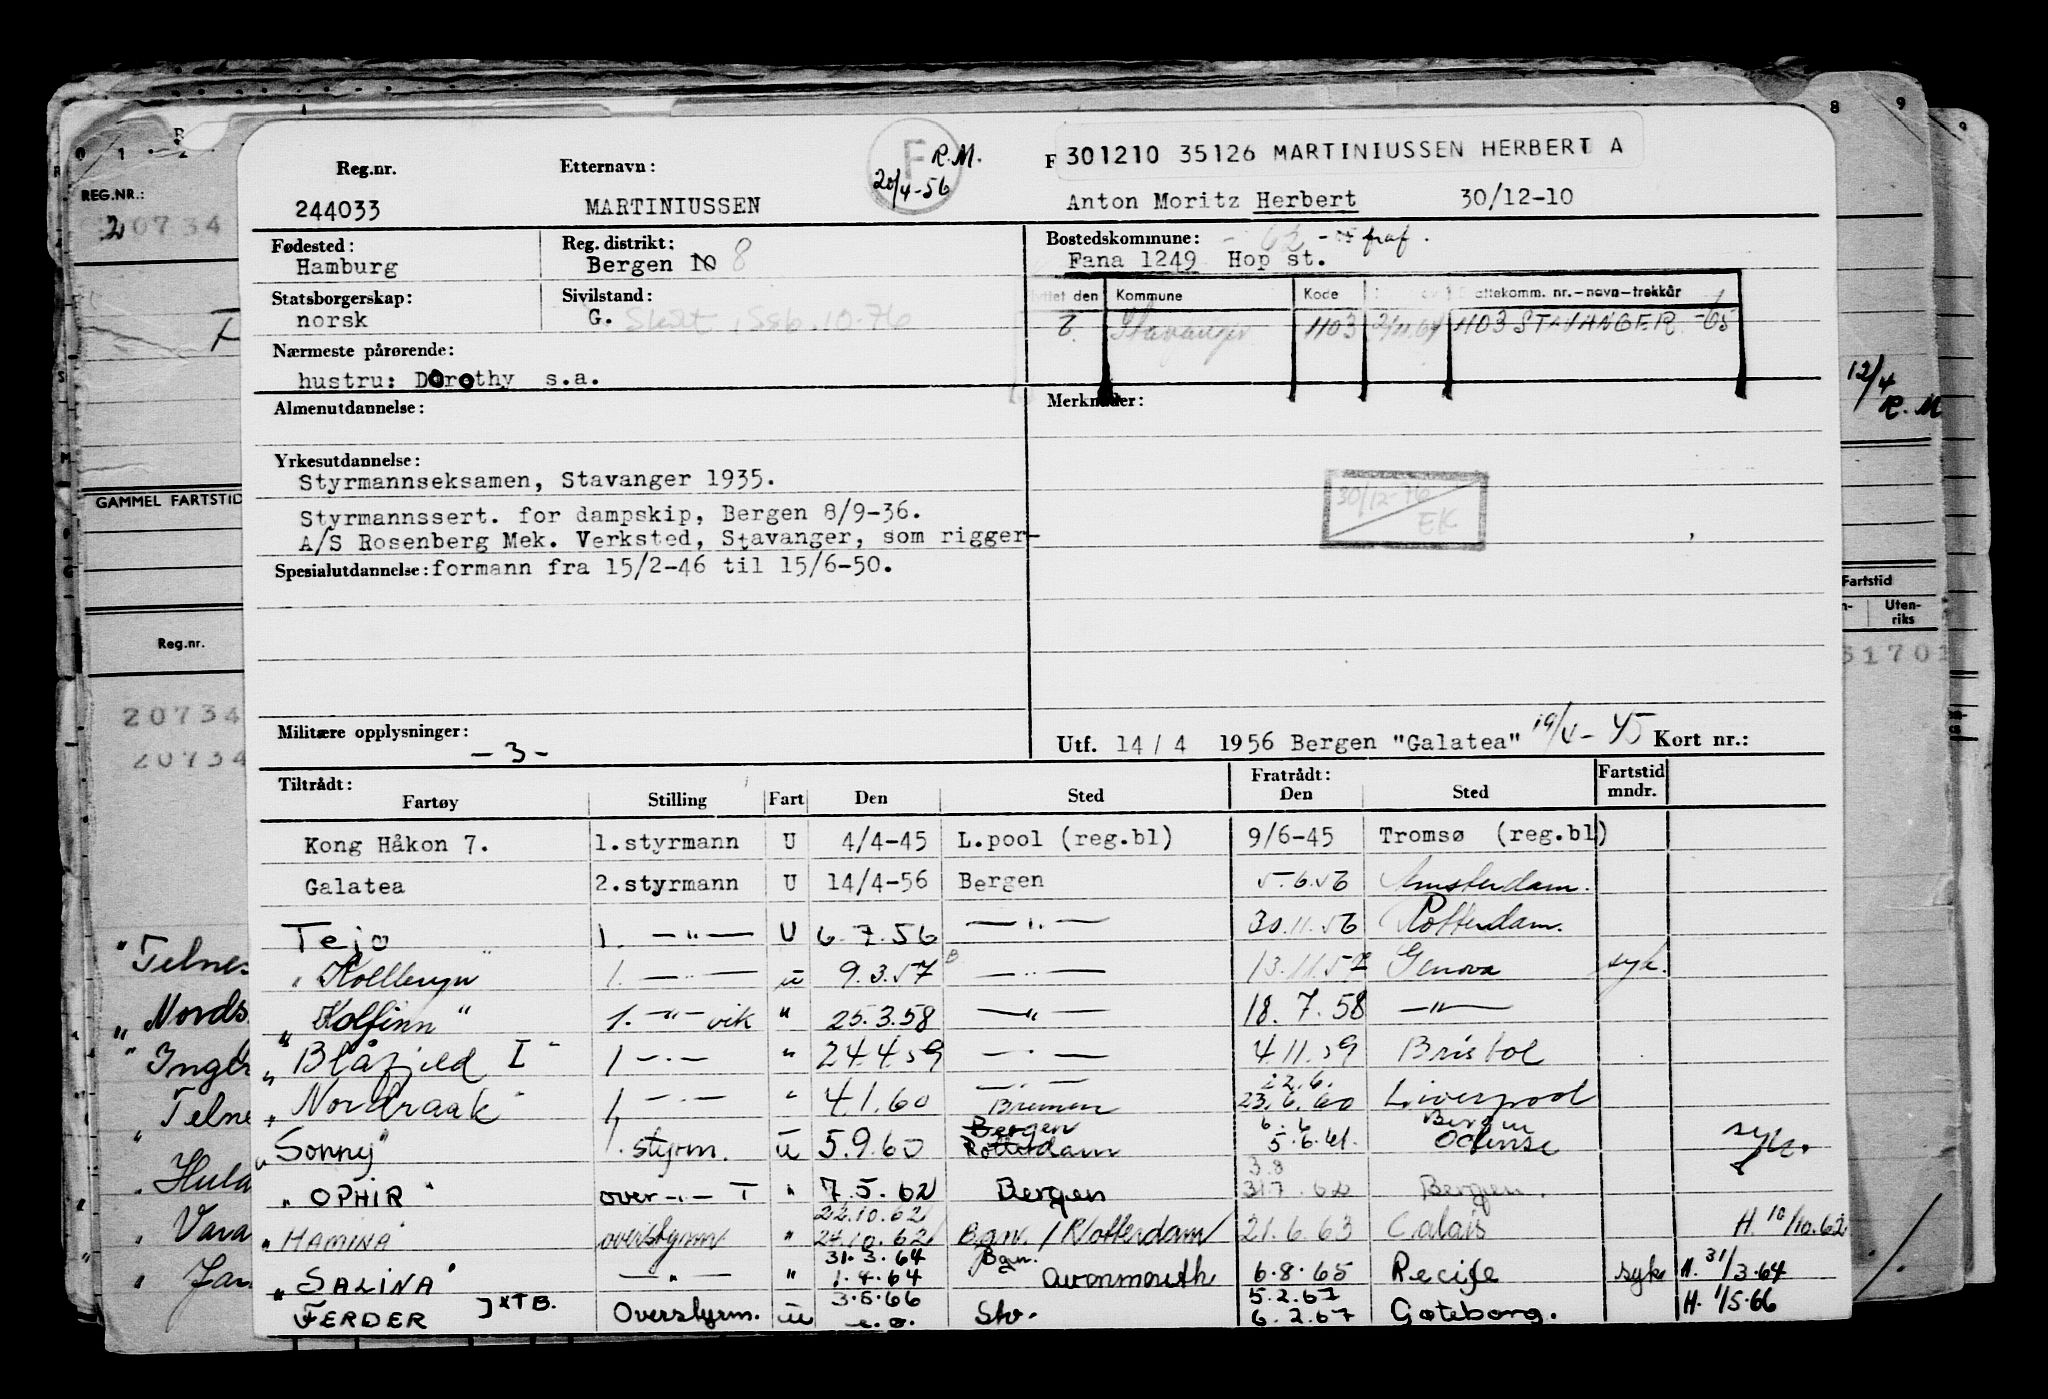 R.M.
301210 35126 MARTINIUSSEN HERBERT A
Reg.nr. Etternavn: F 20/4-56
244033 MARTINIUSSEN Anton Moritz Herbert 30/12-10
Fødested: Reg. distrikt: Bostedskommune: fraf.
Hamburg Bergen 10 8 Fana 1249 Hop st.
Statsborgerskap: Sivilstand: den Kommune Kode attekomm. nr.-navn-trekkår
norsk G. Skilt 10-76 Stavanger 1103 1103 STAVANGER -65
Nærmeste pårørende:
hustru: Dorothy s.a.
Almenutdannelse: Merknader:
Yrkesutdannelse:
Styrmannseksamen, Stavanger 1935.
30/12-76
Styrmannssert. for dampskip, Bergen 8/9-36.
EK
A/S Rosenberg Mek. Verksted, Stavanger, som rigger-
Spesialutdannelse: formann fra 15/2-46 til 15/6-50.
Militære opplysninger: -3-
Utf. 14/4 1956 Bergen "Galatea" Kort nr.:
Tiltrådt: Fratrådt: Fartstid
Fartøy Stilling Fart Den Sted Den Sted mndr.
Kong Håkon 7. 1.styrmann U 4/4-45 L.pool (reg.bl) 9/6-45 Tromsø (reg.bl)
Galatea 2.styrmann U 14/4-56 Bergen 5.6.56 Amsterdam.
Tejo 1. —"— U 6.7.56 —"— 30.11.56 Rotterdam.
"Kollbryn" 1. —"— u 9.3.57 —"— 13.11.57 Genova syk.
"Kolfinn" 1. —"— vik " 25.3.58 —"— 18.7.58 —"—
"Blåfjeld I" 1 —"— " 24.4.59 —"— 4.11.59 Bristol
—"— 22.6.
"Nordraak" 1, —"— " 4.1.60 Bremen 23.6.60 Liverpool
Bergen 6.6 Bergen
"Sonny" 1. styrm. u 5.9.60 Rotterdam 5.6.61. Odense syk.
3.8
"OPHIR" over —"— T " 7.5.62 Bergen 31.7.62 Bergen.
22.10.62
"HAMINA" overstyrm " 24.10.62 Bgn. / Rotterdam 21.6.63 Calais H. 10/10.62
31.3.64 Bgn.
"SALINA" —"— " 1.4.64 Avonmouth 6.8.65 Recife syk H. 31/3.64
3.5.66 5.2.67
FERDER ] xTB. Overstyrm. u e.o. Stv. 6.2.67 Gøteborg. H. 1/5.66
REG.NR.:
20734
GAMMEL FARTSTID
Reg.nr.
20734
20734
"Telnes
"Nords
"Inger
"Telne
"Hula
"Vara
"Jan
8 9
12/4
R.M
Fartstid
Uten-
riks
51701